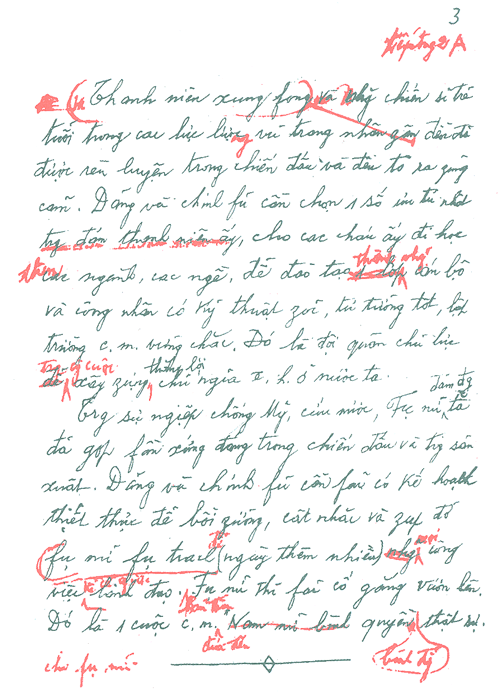 3
tiếp trg 2 A
Thanh niên xung fong và nhg chiến sĩ trẻ
tuổi trong các lực lượng vũ trang nhân dân đều đã
được rèn luyện trong chiến đấu và đều tỏ ra zũng
cảm. Đảng và chính fủ cần chọn 1 số ưu tú nhất
trg đám thanh niên ấy, cho các cháu ấy đi học
thành nhg
thêm các ngành, các ngề, để đào tạo cán bộ
và công nhân có kỹ thuật zỏi, tư tưởng tốt, lập
trường c.m. vững chắc. Đó là đội quân chủ lực
trg cg cuộc thắng lợi
để xây zựng chủ ngĩa x.h. ở nước ta.
đảm đg
Trg sự ngiệp chống Mỹ, cứu nước, Fụ nữ ta
đã góp fần xứng đáng trong chiến đấu và trg sản
xuất. Đảng và chính fủ cần fải có kế hoạch
thiết thực để bồi zưỡng, cất nhắc và zúp đỡ
để mọi
fụ nữ fụ trách (ngày thêm nhiều) nhg công
việc lãnh đạo. Fụ nữ thì fải cố gắng vươn lên.
Đó là 1 cuộc c.m. Nam nữ bình quyền thật sự.
đưa đến
cho fụ nữ. bình đg